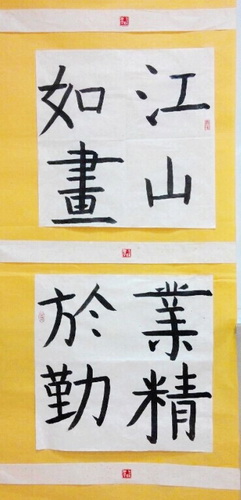 江山
如畫
業精
於勤